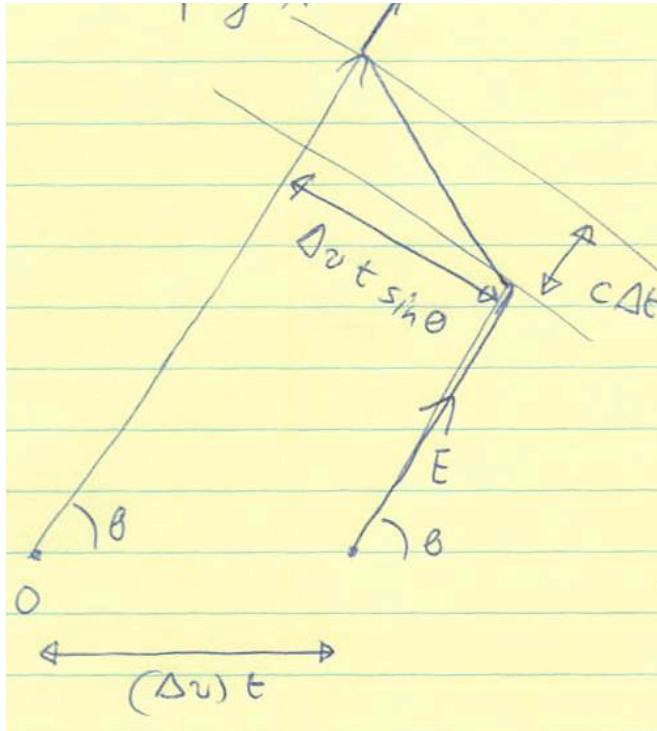 Δv t sin θ
c Δt
E
θ
θ
O
(Δv) t